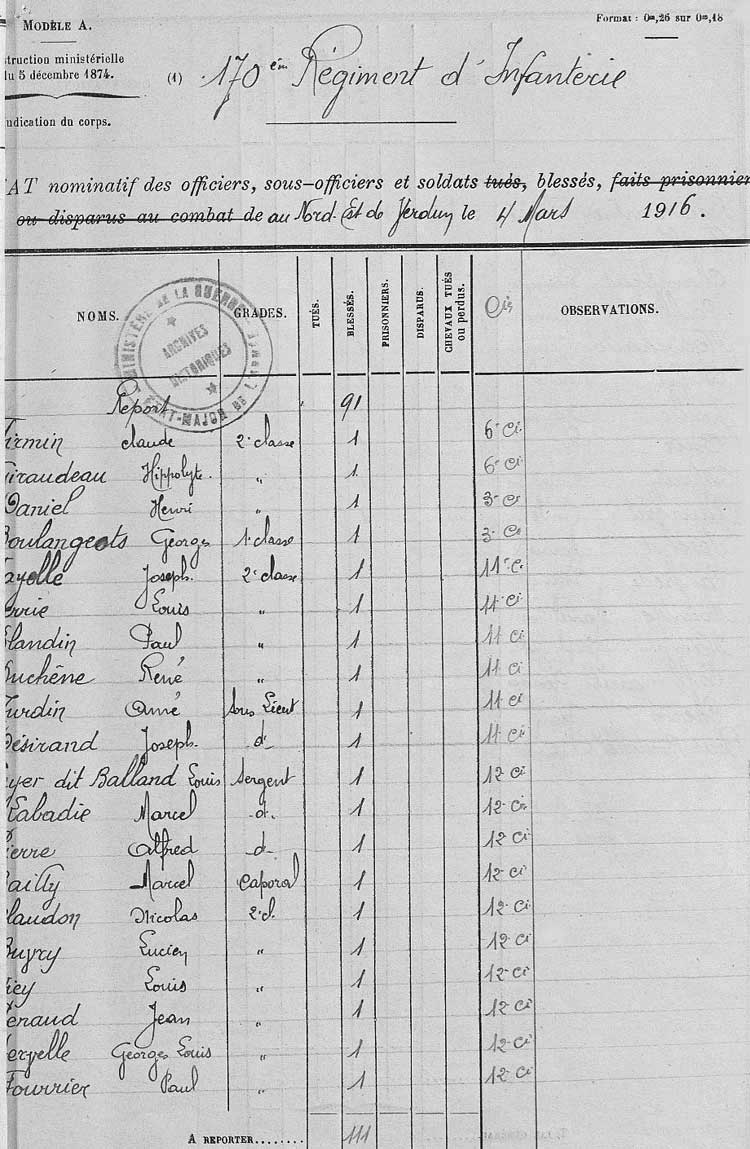 MODÈLE A.
Format : 0m,26 sur 0m,18
struction ministérielle
du 5 décembre 1874.
(1) 170ème Régiment d'Infanterie
ndication du corps.
TAT nominatif des officiers, sous-officiers et soldats tués, blessés, faits prisonnier
ou disparus au combat de au Nord-Est de Verdun le 4 Mars 1916.
NOMS. GRADES. TUÉS. BLESSÉS. PRISONNIERS. DISPARUS. CHEVAUX TUÉS ou perdus. Cie OBSERVATIONS.
MINISTÈRE DE LA GUERRE ÉTAT-MAJOR DE L'ARMÉE
ARCHIVES HISTORIQUES
Report 91
Firmin Claude 2e classe 1 6e Cie
Giraudeau Hippolyte. " 1 6e Cie
Daniel Henri " 1 3e Cie
Boulangeots Georges 1e classe 1 3e Cie
Fayolle Joseph. 2e classe 1 11e Cie
errie Louis " 1 11 Cie
Blandin Paul " 1 11 Cie
Duchêne René " 1 11 Cie
Turdin Aimé Sous Lieut 1 11 Cie
Désirand Joseph. d- 1 11 Cie
eyer dit Balland Louis Sergent 1 12 Cie
Labadie Marcel d- 1 12 Cie
Pierre Alfred d- 1 12 Cie
ailly Marcel Caporal 1 12 Cie
laudon Nicolas 2e cl. 1 12 Cie
Lucien " 1 12 Cie
iey Louis " 1 12 Cie
enaud Jean " 1 12 Cie
Georges Louis " 1 12 Cie
Fourrier Paul " 1 12 Cie
A REPORTER........ 111